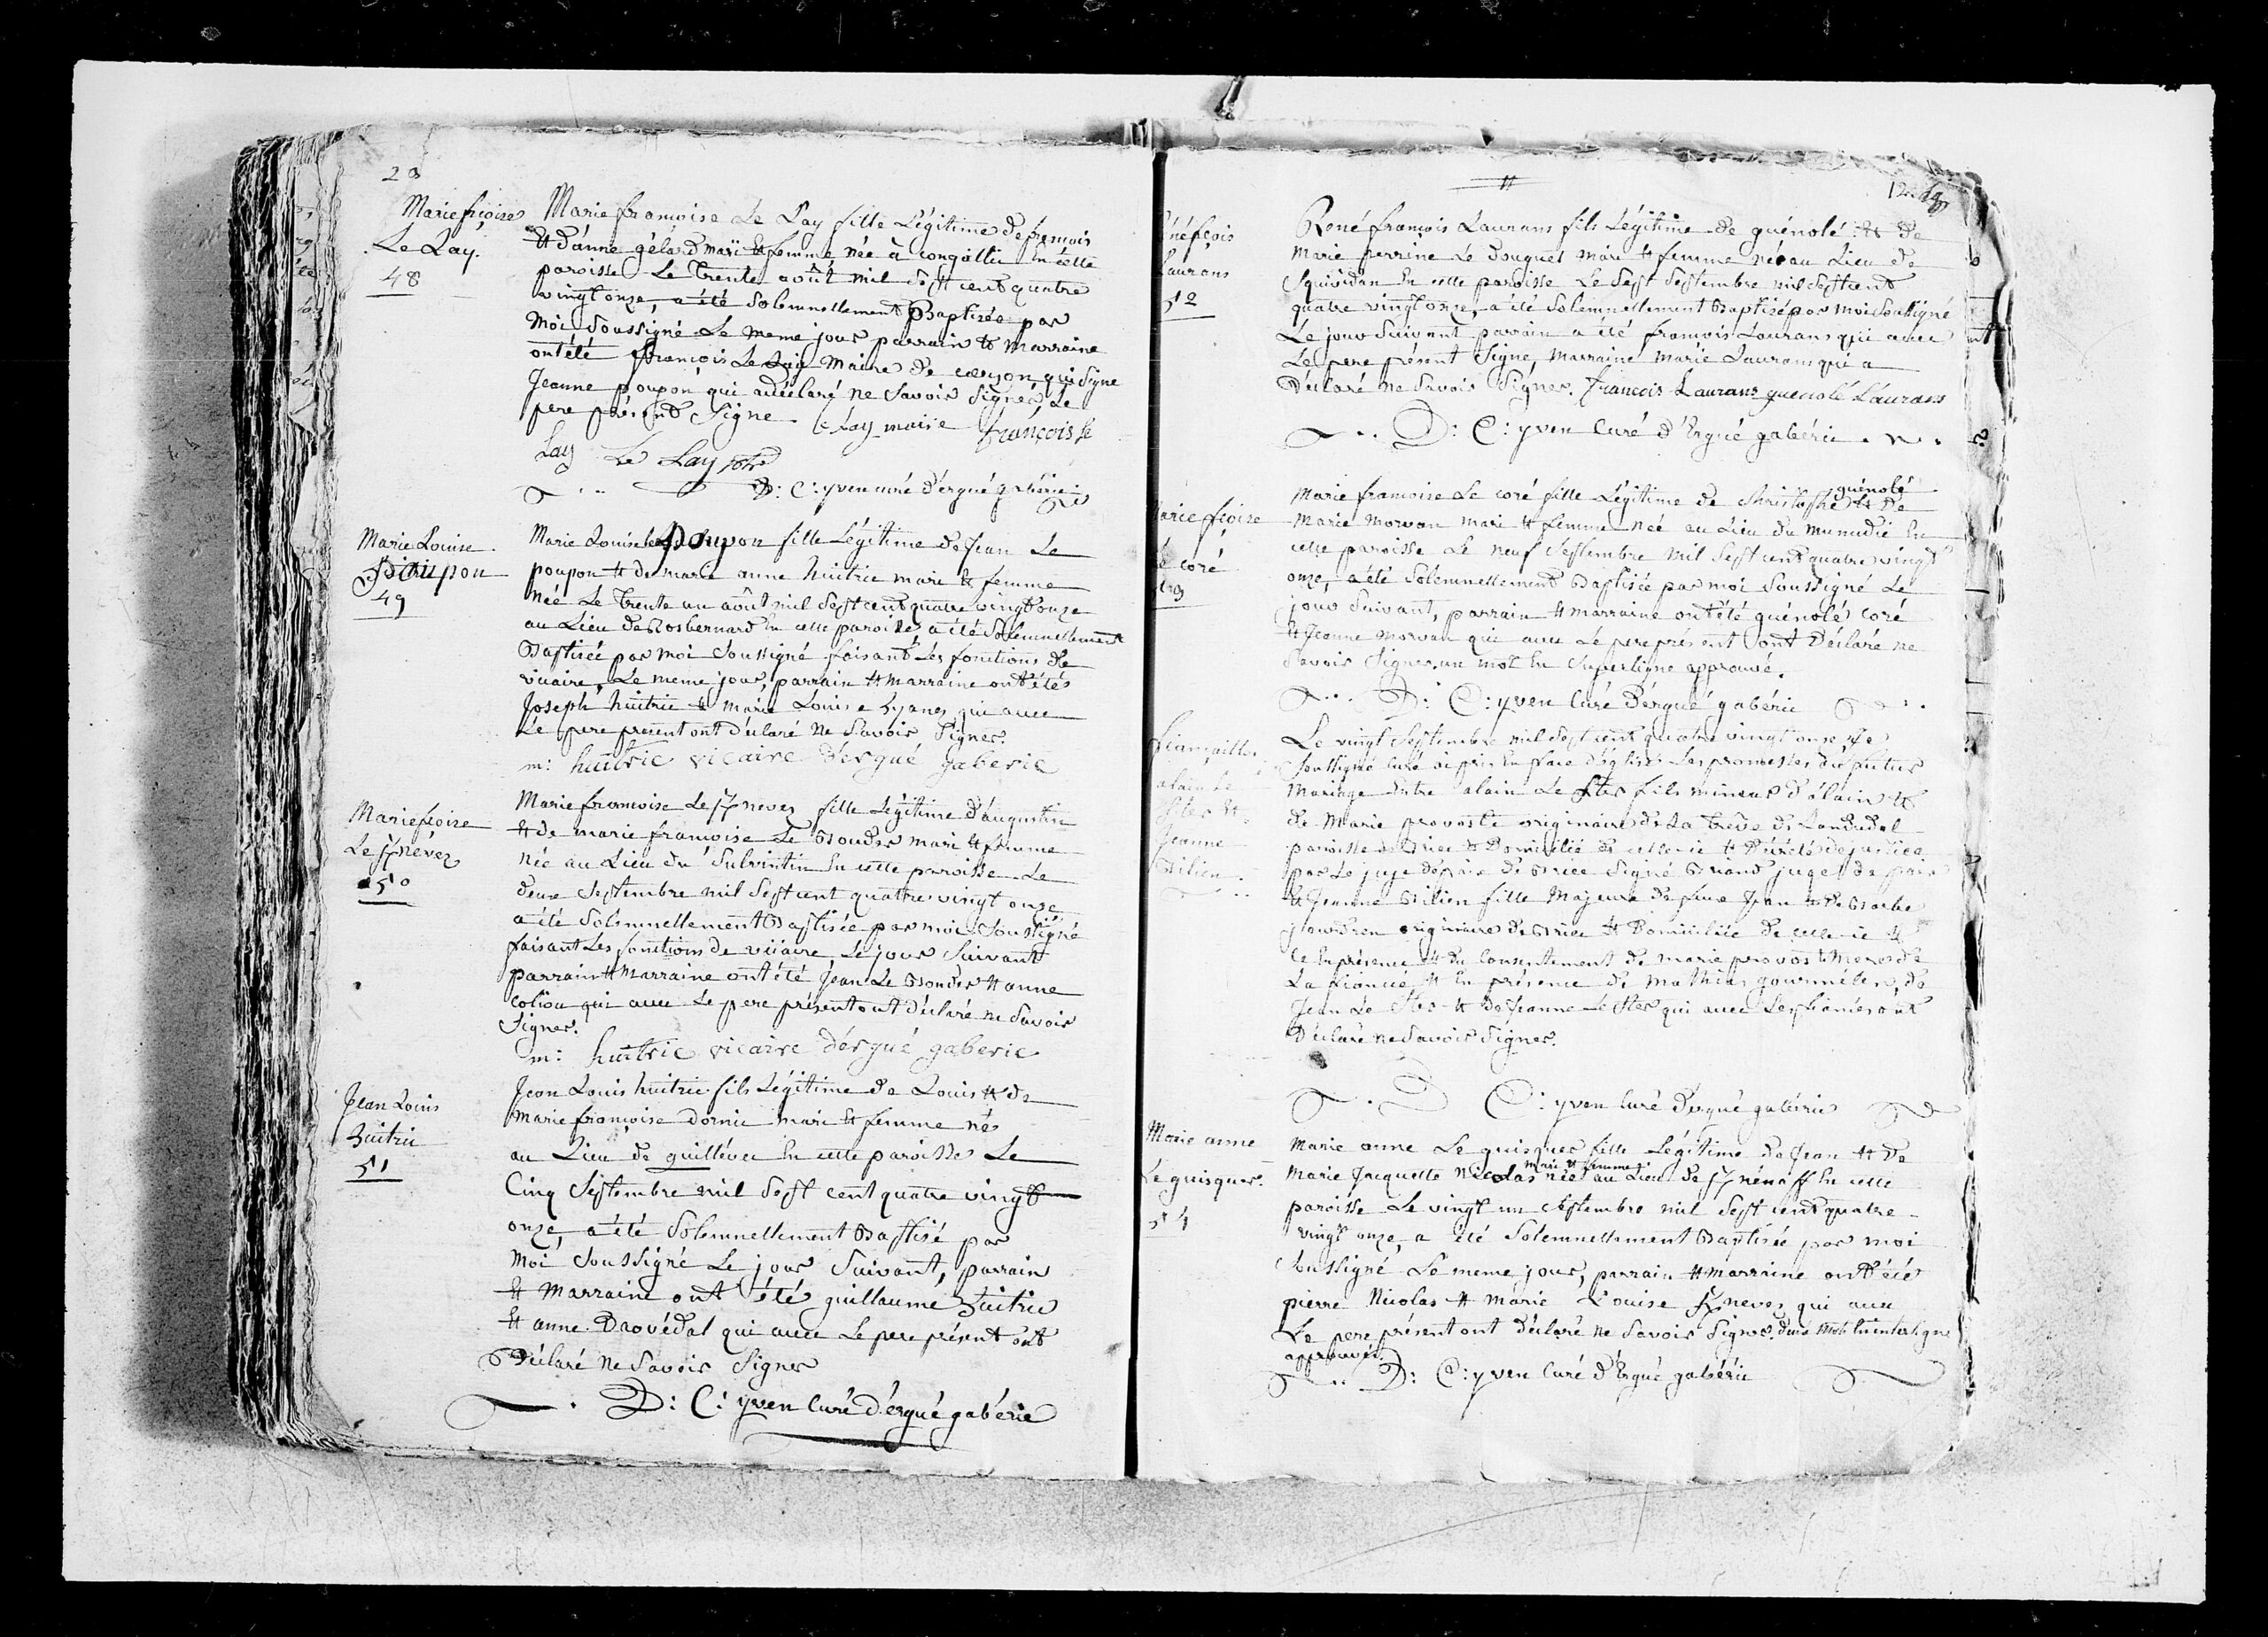 Marie fçoise
Le Lay.
48
Marie françoise Le Lay fille Légitime de françois
et d'anne gélard mari et femme née à congallic En cette
paroisse Le trente août mil sept cent quatre
vingt onze, a été Solemnellement Baptisée par
Moi Soussigné Le meme jour parrain et marraine
ont été françois Le Lay Maire de qui Signe
Jeanne poupon qui a déclaré ne Savoir Signer, Le
pere présent Signe Le Lay maire françois le
Lay Le Lay
D: C: yven curé d'ergué gabéric
Marie Louise
Poupon
49
Marie Louise Poupon fille Légitime de Jean Le
poupon et de marie anne huitric mari et femme
née Le trente un août mil Sept cent quatre vingt onze
au Lieu de Rosbernard En cette paroisse a été Solemnellement
Baptisée par moi Soussigné faisant Les fonctions de
vicaire, Le meme jour, parrain et marraine ont étés
Joseph huitric et marie Louise qui avec
Le pere present ont déclaré ne Savoir Signer.
m: huitric vicaire d'ergué gaberic
Marie fçoise
Le névez
50
Marie françoise Le nevez fille Légitime d'augustin
et de marie françoise Le Bouder mari et femme
née au Lieu du Sulvintin En cette paroisse Le
deux Septembre mil Sept cent quatre vingt onze
a été Solemnellement Baptisée par moi Soussigné
faisant Les fonctions de vicaire, Le jour Suivant
parrain et marraine ont été Jean Le Bouder et anne
coliou qui avec Le pere présent ont déclaré ne Savoir
Signer.
m: huitric vicaire d'érgué gaberic
Jean Louis
huitric
51
Jean Louis huitric fils Légitime de Louis et de
Marie françoise dornic mari et femme nés
au Lieu de quillévec En cette paroisse Le
Cinq Septembre mil Sept cent quatre vingt
onze, a été Solemnellement Baptisé par
Moi Soussigné Le jour Suivant, parrain
et Marraine ont été guillaume huitric
et anne qui avec Le pere présent ont
Déclaré ne Savoir Signer
D: C: yven Curé d'érgué gabéric
Réné fçois
Laurans
52
René françois Laurans fils Légitime de guénolé et de
Marie perrine Le Douguet mari et femme né au Lieu de
Squividan En cette paroisse Le Sept Septembre mil Sept cent
quatre vingt onze, a été Solemnellement Baptisé par moi Soussigné
Le jour Suivant parrain a été françois Laurans qui avec
Le pere présent Signe, Marraine Marie Laurans qui a
Déclaré ne Savoir Signer. françois Laurans guenolé Laurans
D: C: yven Curé d'Ergué gabéric
Marie fçoise
Le coré
guénolé
Marie françoise Le coré fille Légitime de Christophe et de
Marie Morvan mari et femme née au Lieu du Munudic En
cette paroisse Le neuf Septembre mil Sept cent quatre vingt
onze, a été Solemnellement Baptisée par moi Soussigné Le
jour Suivant, parrain et marraine ont été guénolé coré
et Jeanne Morvan qui avec Le pere présent ont Déclaré ne
Savoir Signer. un mot En Superligne approuvé.
D: C: yven Curé d'érgué gabéric
fiançailles
alain Le
Ster et
Jeanne
Bilien.
Le vingt Septembre mil Sept cent quatre vingt onze, Je
Soussigné Curé ai pris En face d'églises Les promesses du futur
Mariage Entre alain Le Ster fils mineur d'alain et
de Marie provosté originaire de La trève de Landudal
paroisse de Briec et Domicilié de celle-ci et Décrété de justice
par Le juge de paix de Briec Signé Briand juge de paix
et Jeanne Bilien fille Majeure de feue Jean et de Barbe
originaire de Briec et Domiciliée de celle-ci et
Ce En présence et Du Consentement de marie provost Mere de
La fiancée et En présence de Mathias gourmélen, de
Jean Le Ster et de Jeanne Le Ster qui avec Les fiancés ont
Déclaré ne Savoir Signer.
D C: yven Curé d'ergué gabéric
Marie anne
Le guisquer.
54
Marie anne Le guisquer fille Légitime de Jean et de
Mari et femme
Marie Jacquette Nicolas née au Lieu de En cette
paroisse Le vingt un Septembre mil Sept cent quatre
vingt onze, a été Solemnellement Baptisée par moi
Soussigné Le meme jour, parrain et marraine ont été
pierre Nicolas et marie Louise nevez qui avec
Le pere présent ont déclaré ne Savoir Signer. deux Mots En interligne
approuvés.
D: C: yven Curé d'Ergué gabéric